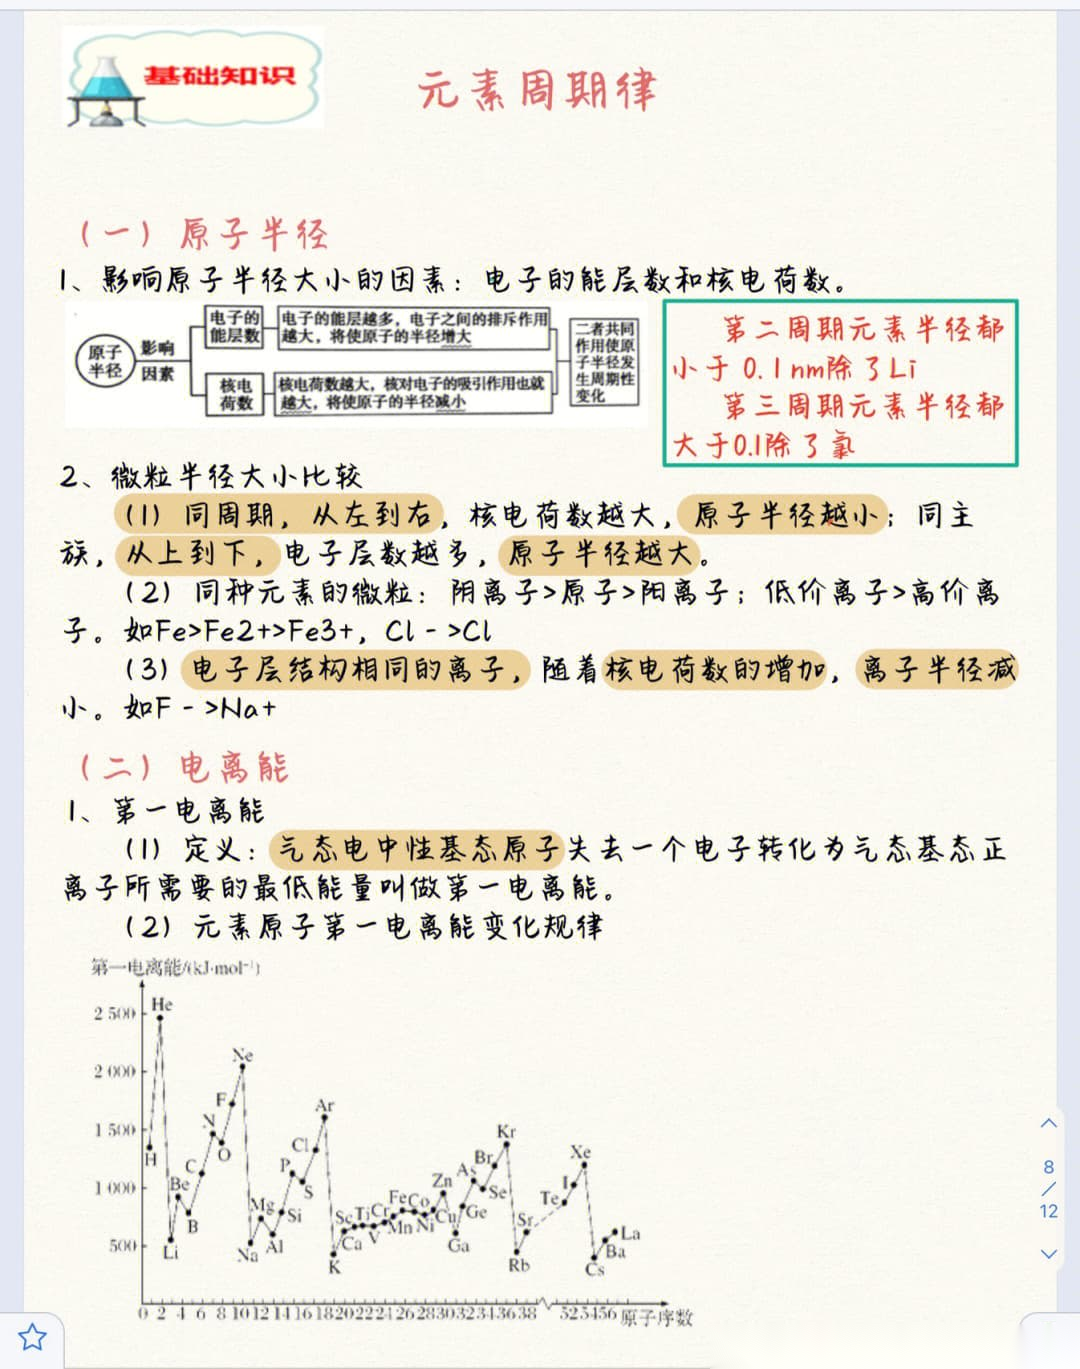 基础知识
元素周期律
(一) 原子半径
1、影响原子半径大小的因素：电子的能层数和核电荷数。
原子半径
影响因素
电子的能层数
电子的能层越多，电子之间的排斥作用
越大，将使原子的半径增大
核电荷数
核电荷数越大，核对电子的吸引作用也就
越大，将使原子的半径减小
二者共同
作用使原
子半径发
生周期性
变化
第二周期元素半径都
小于 0.1nm除了Li
第三周期元素半径都
大于0.1除了氯
2、微粒半径大小比较
(1) 同周期，从左到右，核电荷数越大，原子半径越小；同主
族，从上到下，电子层数越多，原子半径越大。
(2) 同种元素的微粒：阴离子>原子>阳离子；低价离子>高价离
子。如Fe>Fe2+>Fe3+，Cl - >Cl
(3) 电子层结构相同的离子，随着核电荷数的增加，离子半径减
小。如F - >Na+
(二) 电离能
1、第一电离能
(1) 定义：气态电中性基态原子失去一个电子转化为气态基态正
离子所需要的最低能量叫做第一电离能。
(2) 元素原子第一电离能变化规律
第一电离能/(kJ·mol⁻¹)
2 500
2 000
1 500
1 000
500
H
He
Li
Be
B
C
N
O
F
Ne
Na
Mg
Al
Si
P
S
Cl
Ar
K
Ca
Sc
Ti
V
Cr
Mn
Fe
Co
Ni
Cu
Zn
Ga
Ge
As
Se
Br
Kr
Rb
Sr
Te
I
Xe
Cs
Ba
La
0 2 4 6 8 10 12 14 16 18 20 22 24 26 28 30 32 34 36 38 52 54 56 原子序数
8
/
12